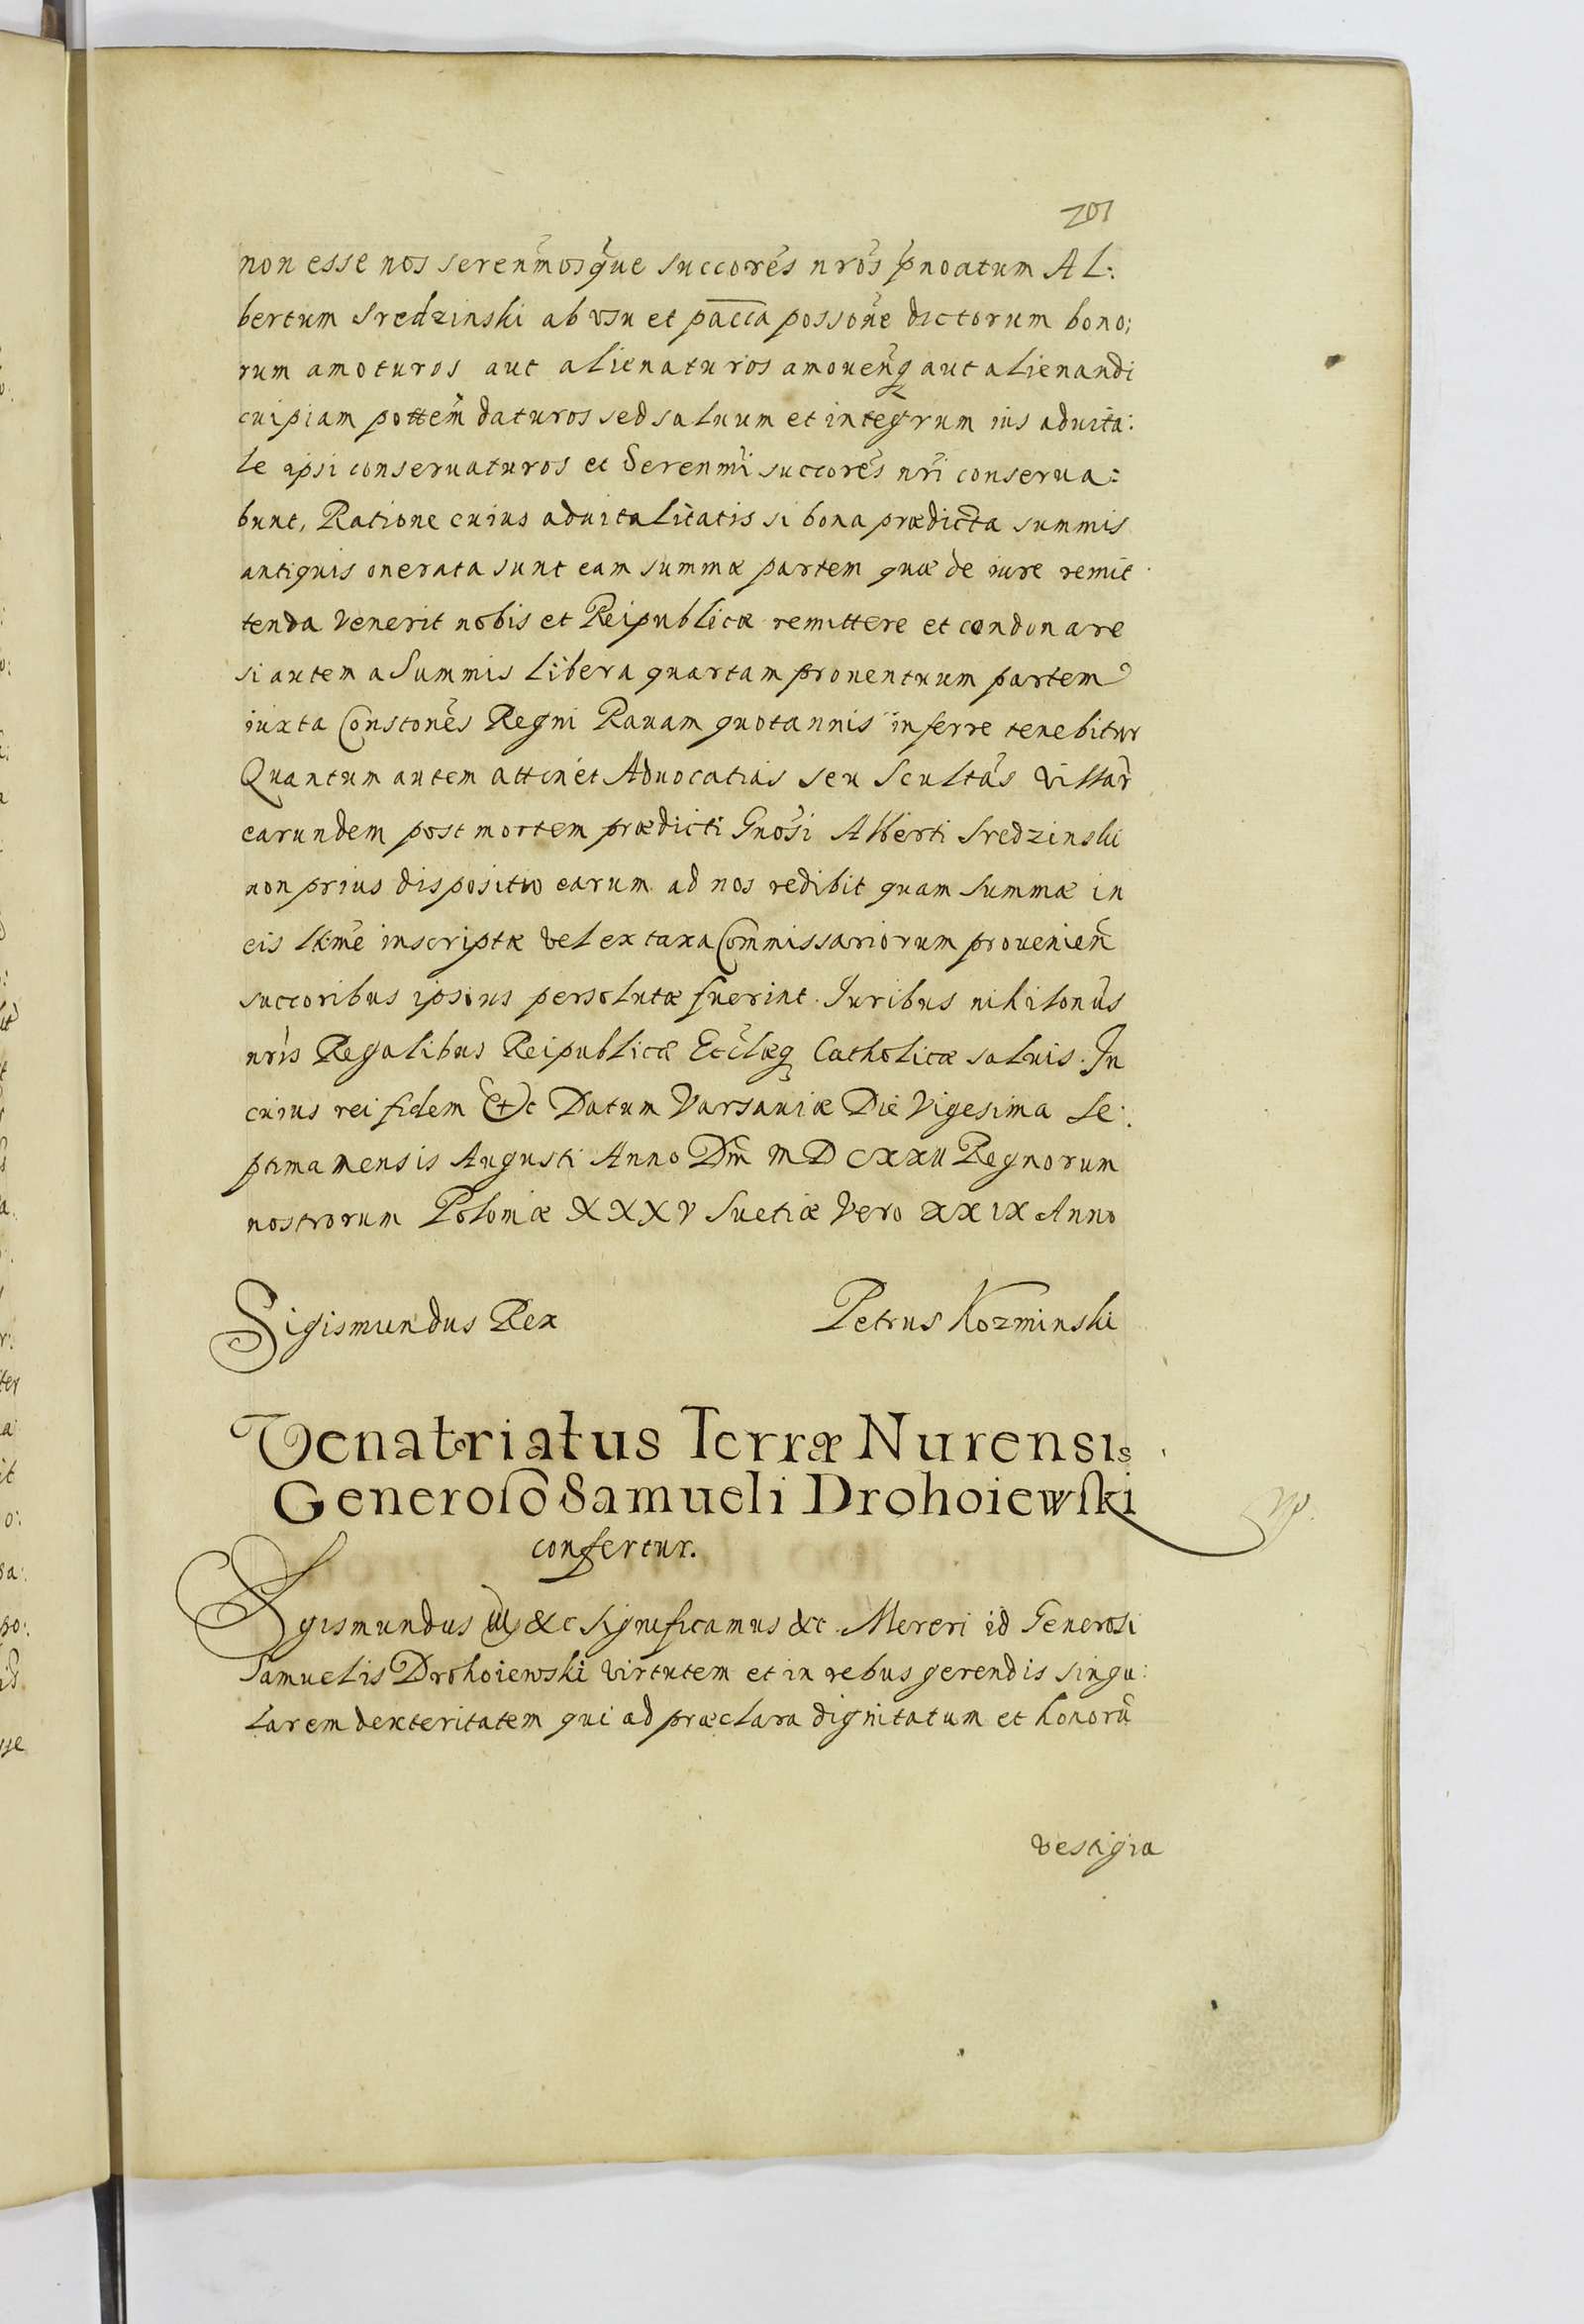 201
non esse nos serenm̃osq̃ue succorẽs nrõs p̃noatum AL:
bertum Sredzinski ab usu et pacc̅a possonẽ dictorum bono:
rum amoturos aut alienaturos amouen̄q aut alienandi
cuipiam pottem̃ daturos sed saluum et integrum ius aduita:
le ipsi conseruaturos et Serenmĩ succorẽs nrĩ conserua:
bunt, Ratione cuius aduitalitatis si bona prædicta summis
antiquis onerata sunt eam summæ partem quæ de iure remit
tenda venerit nobis et Reipublicæ remittere et condonare
si autem a Summis libera quartam prouentuum partem
iuxta Constonẽs Regni Rauam quotannis inferre tenebitur
Quantum autem attinet Aduocatias seu Scultãs villar̃
earundem post mortem prædicti Gnõsi Alberti Sredzinski
non prius dispositio earum ad nos redibit quam summæ in
eis ltmẽ inscriptæ vel ex taxa Commissariorum prouenien̄
succoribus ipsius persolutæ fuerint. Iuribus nihilonũs
nrĩs Regalibus Reipublicæ Ecclæ̃q Catholicæ saluis. In
cuius rei fidem etc Datum Varsauiæ Die Vigesima Se:
ptima mensis Augusti Anno Dm̃ MDCXXII Regnorum
nostrorum Poloniæ XXXV Suetiæ Vero XXIX Anno
Sigismundus Rex Petrus Kozminski
Venatriatus Terræ Nurensis
Generoso Samueli Drohoiewski
confertur.
Sigismundus III &c Significamus &c. Mereri id Generosi
Samuelis Drohoiewski virtutem et in rebus gerendis singu:
larem dexteritatem qui ad præclara dignitatum et honorũ
vestigia